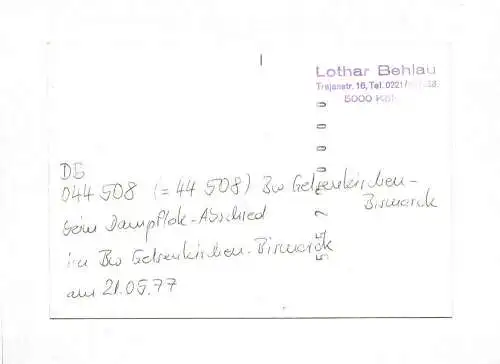 Lothar Behlau
Trajanstr. 16, Tel. 0221/
5000 Köln
DB
044 508 (= 44 508) Bw Gelsenkirchen-
Bismarck
beim Dampflok-Abschied
im Bw Gelsenkirchen-Bismarck
am 21.05.77